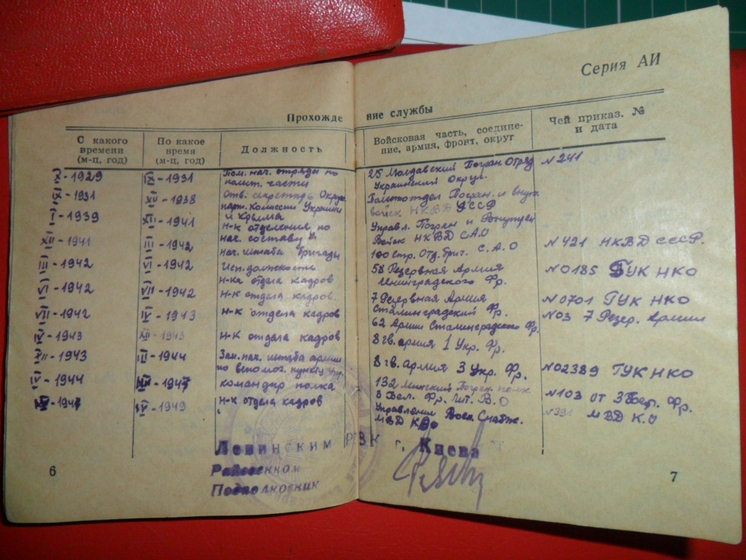 Серия АИ
Прохождение службы
С какого времени (м-ц, год)
По какое время (м-ц, год)
Должность
Войсковая часть, соединение, армия, фронт, округ
Чей приказ, № и дата
-1929
-1931
Пом. нач. отряда по
полит. части
25 Молдавский Погран Отряд
Украинский Округ.
№241
-1931
-1938
Отв. секретарь Окруж.
парт. Комиссии Украины
и Крыма
Политотдел Погран. и внутр
войск НКВД УССР
-1939
-1941
н-к отделения по
нач. составу
Управл. Погран и
Войск НКВД САО
XII-1941
-1942
нач. штаба бригады
100 стр. Отд. бриг. С.А.О
№421 НКВД СССР.
III-1942
VI-1942
Исп. должность
н-ка отдела кадров
58 Резервная Армия
Ленинградского Фр.
№0185 ГУК НКО
-1942
-1942
н-к отдела кадров
7 Резервная Армия
Сталинградский Фр.
№0701 ГУК НКО
-1942
-1943
н-к отдела кадров
62 Армия Сталинградского Фр.
№03 7 Резер. Армии
-1943
-1943
н-к отдела кадров
8 гв. армия 1 Укр. Фр.
-1943
-1944
Зам. нач. штаба армии
по вспомог. пункту упр.
8 гв. армия 3 Укр. Фр.
№02389 ГУК НКО
-1944
-1947
командир полка
132 Минский Погран полк
3 Бел. Фр. Лит. В.О
№103 от 3 Бел. Фр.
-1947
-1949
н-к отдела кадров
Управления Воен Снабж.
МВД К.О
МВД К.О
Ленинским РВК г. Киева
Райвоенком
Подполковник
6
7